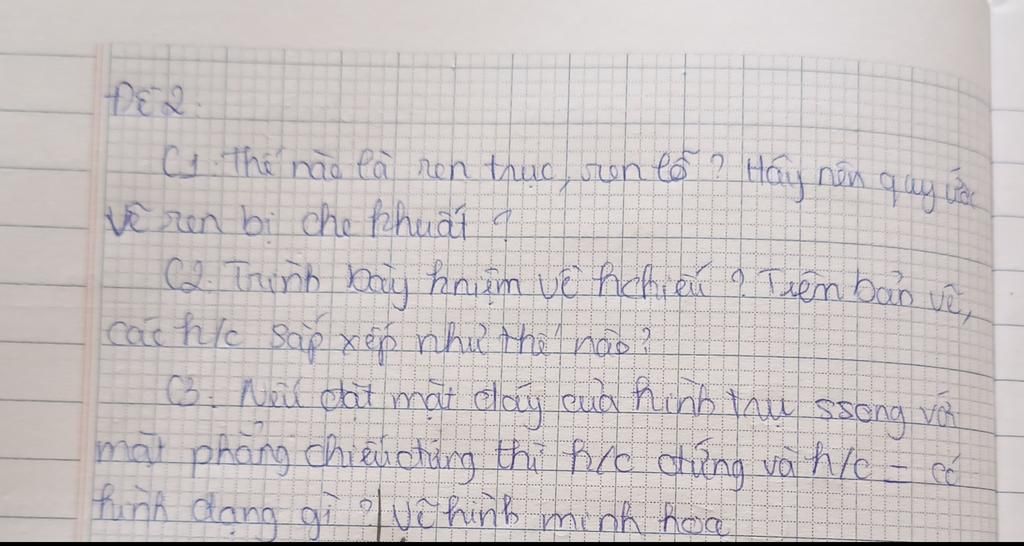 ĐỀ 2.
C1. Thế nào là ren trục, ren lỗ? Hãy nêu quy ước
vẽ ren bị che khuất?
C2. Trình bày kniệm về hchiếu? Trên bản vẽ,
các h/c sắp xếp như thế nào?
C3. Nếu đặt mặt đáy của hình trụ ssong với
mặt phẳng chiếu đứng thì h/c đứng và h/c = có
hình dạng gì? Vẽ hình minh họa